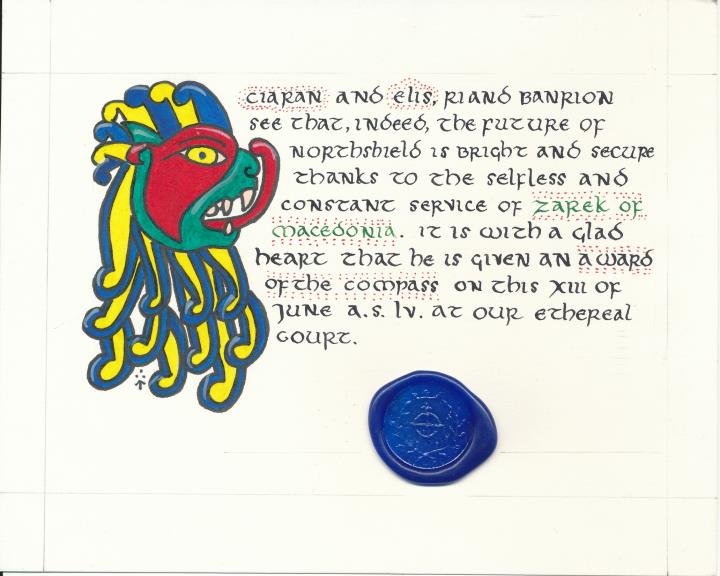 Ciaran and Elis, Ri and Banrion
see that, indeed, the future of
Northshield is bright and secure
thanks to the selfless and
constant service of Zarek of
Macedonia. It is with a glad
heart that he is given an award
of the compass on this XIII of
June a.s. lv. at our ethereal
court.